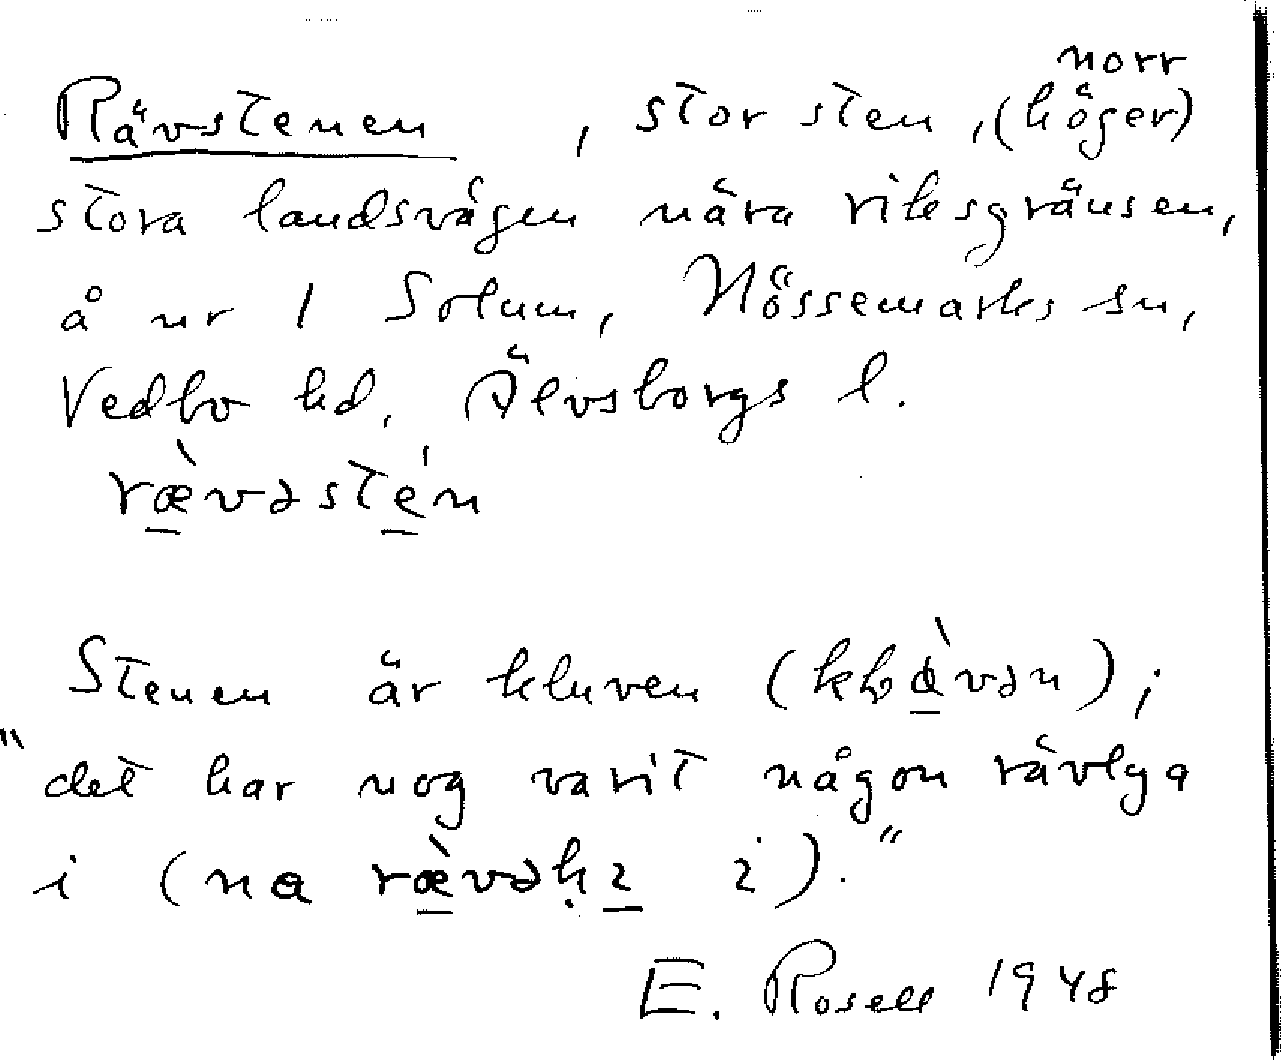 norr
Rävstenen , stor sten, (höger)
stora landsvägen nära riksgränsen,
å nr 1 Solum, Nössemarks sn,
Vedbo hd, Älvsborgs l.
ræ̀vəstén
Stenen är kluven ( );
"det har nog varit någon rävlya
i (na i)."
E. Rosell 1948